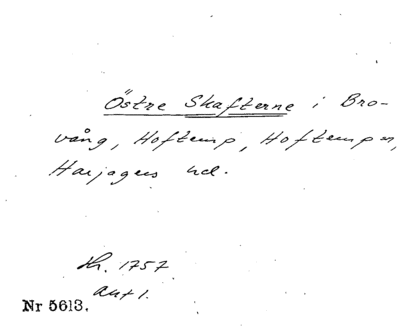 Östre Skafterne i Bro-
vång, Hoftemp, Hoftemp sn,
Harjagers hd.
Hr. 1757
akt 1.
Nr 5613.